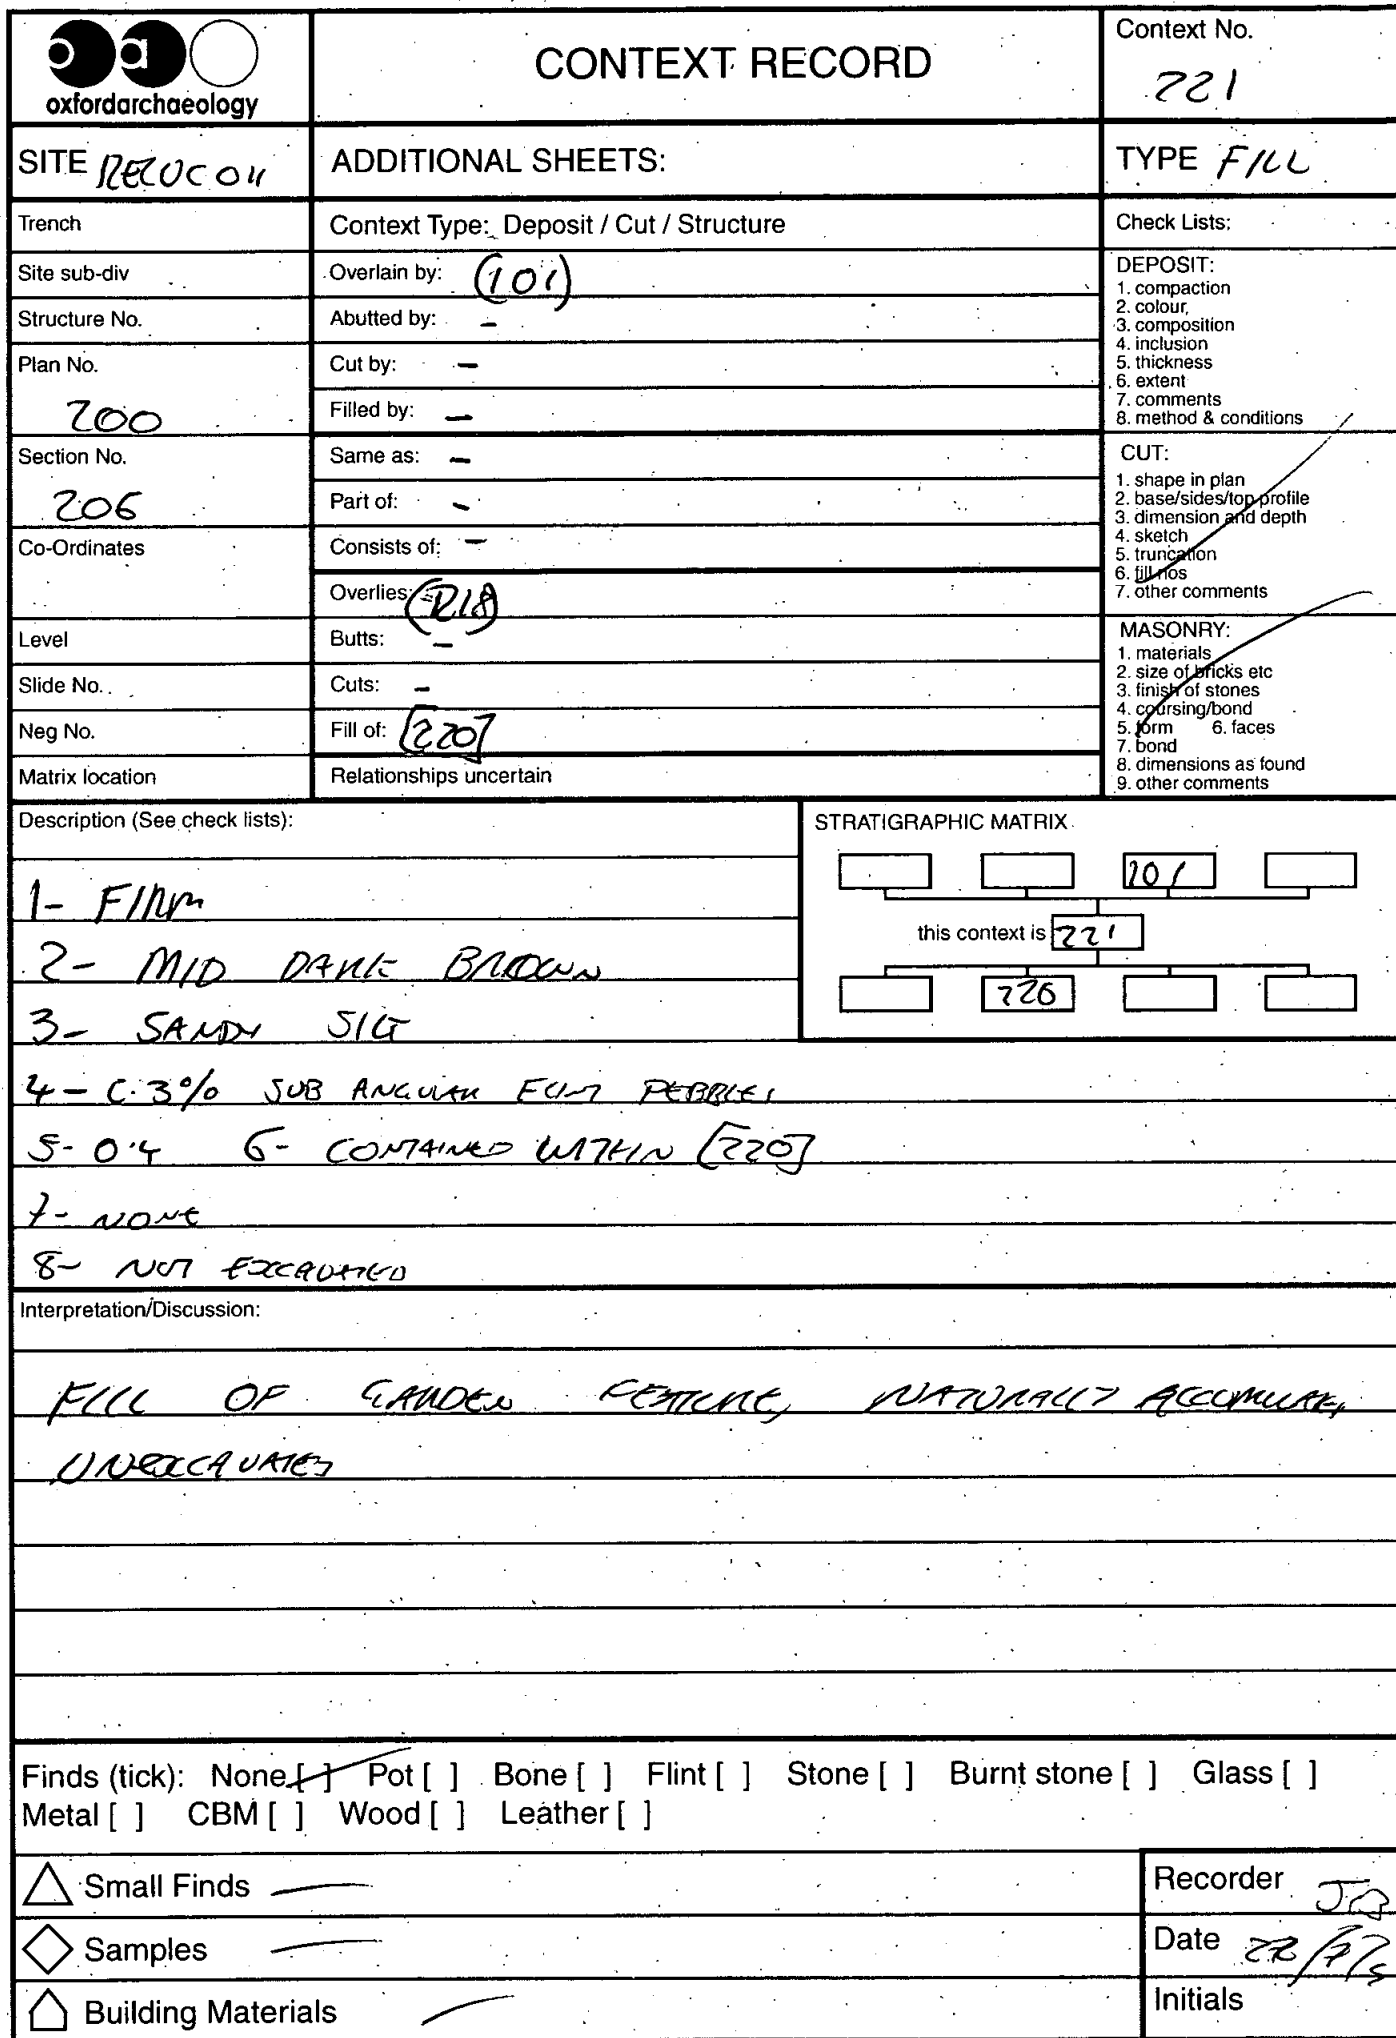 oao
oxfordarchaeology
CONTEXT RECORD
Context No.
221
SITE
ADDITIONAL SHEETS:
TYPE FILL
Trench
Context Type: Deposit / Cut / Structure
Check Lists:
Site sub-div
Overlain by: (101)
Structure No.
Abutted by: -
Plan No.
200
Cut by: -
Filled by: -
Section No.
206
Same as: -
Part of: -
Co-Ordinates
Consists of: -
Overlies:
Level
Butts: -
Slide No.
Cuts: -
Neg No.
Fill of: [220]
Matrix location
Relationships uncertain
DEPOSIT:
1. compaction
2. colour,
3. composition
4. inclusion
5. thickness
6. extent
7. comments
8. method & conditions
CUT:
1. shape in plan
2. base/sides/top profile
3. dimension and depth
4. sketch
5. truncation
6. fill nos
7. other comments
MASONRY:
1. materials
2. size of bricks etc
3. finish of stones
4. coursing/bond
5. form 6. faces
7. bond
8. dimensions as found
9. other comments
Description (See check lists):
1- FIRM
2- MID DARK BROWN
3- SANDY SILT
4- C.3% SUB ANGULAR FLINT PEBBLES
5- 0.4 6- CONTAINED WITHIN [220]
7- NONE
8- NOT EXCAVATED
STRATIGRAPHIC MATRIX
101
this context is 221
220
Interpretation/Discussion:
FILL OF GARDEN FEATURE, NATURALLY ACCUMULATED,
UNEXCAVATED
Finds (tick): None [ ] Pot [ ] Bone [ ] Flint [ ] Stone [ ] Burnt stone [ ] Glass [ ]
Metal [ ] CBM [ ] Wood [ ] Leather [ ]
Small Finds
Samples
Building Materials
Recorder JB
Date
Initials